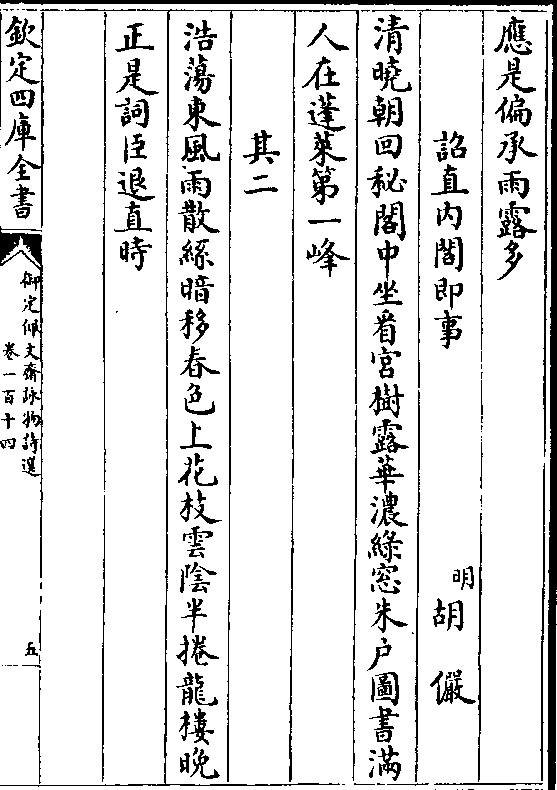 應是偏承雨露多
詔直内閣即事
明
胡儼
清曉朝回秘閣中坐看宮樹露華濃綠窓朱户圖書滿
人在蓬萊第一峰
其二
浩蕩東風雨散絲暗移春色上花枝雲陰半捲龍樓晚
正是詞臣退直時
欽定四庫全書
御定佩文齋詠物詩選
卷一百十四
五